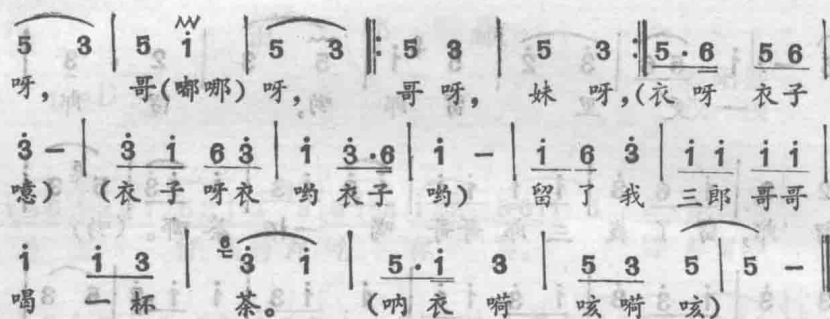 5 3 | 5 i | 5 3 ‖: 5 3 | 5 3 :‖ 5·6 5 6 |
呀, 哥(嘟哪)呀, 哥呀, 妹呀,(衣呀 衣子
3 - | 3 i 6 3 | i 3·6 | i - | i 6 3 | i i i i |
噫) (衣子 呀衣 哟 衣子 哟) 留了我 三郎 哥哥
i i 3 | 6 3 i | 5·i 3 | 5 3 5 | 5 - ‖
喝 一杯 茶。 (呐衣 嗬 咳嗬 咳)